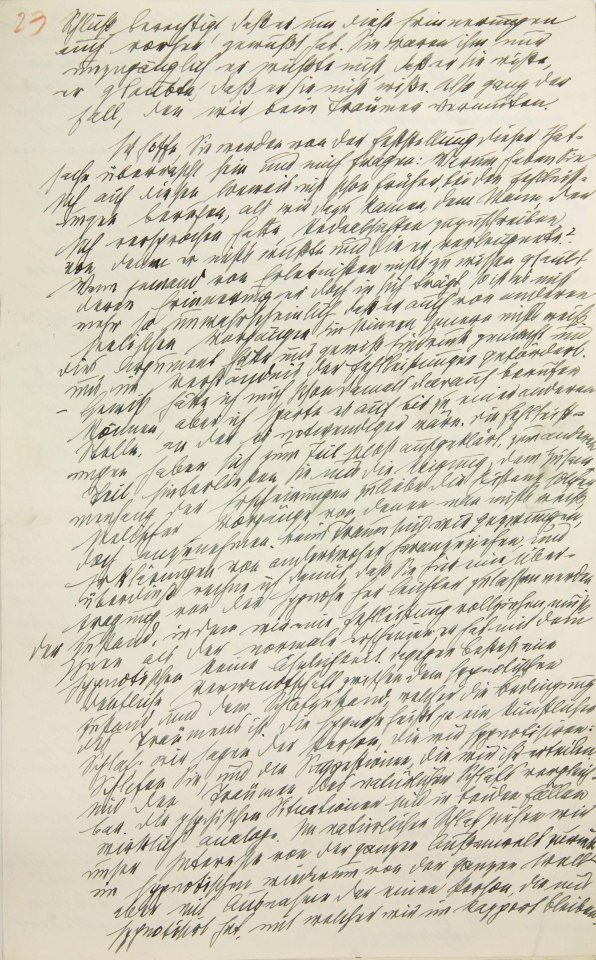 23
Schluß berechtigt daß er um diese Erinnerungen
auch vorher gewußt hat. Sie waren ihm nur
unzugänglich er wußte nicht daß er sie wisse,
er glaubte, daß er sie nicht wisse. Also ganz der
Fall, den wir beim Träumer vermuten.
Ich hoffe, Sie werden von der Feststellung dieser Tat-
sache überrascht sein und mich fragen: Warum haben Sie
sich auf diesen Beweis nicht schon früher bei den Fehlleist-
ungen berufen, als wir dazu kamen, dem Mann, der
sich versprochen hatte Redeabsichten zuzuschreiben
von denen er nichts wußte und die er verleugnete?
Wenn jemand von Erlebnissen nichts zu wissen glaubt
deren Erinnerung er doch in sich trägt, so ist es nicht
mehr so unwahrscheinlich daß er auch von anderen
seelischen Vorgängen in seinem Inneren nichts weiß.
Dies Argument hätte uns gewiß Eindruck gemacht und
uns im Verständnis der Fehlleistungen gefördert.
– Gewiß hätte ich mich schon damals darauf berufen
können, aber ich sparte es auf bis zu einer anderen
Stelle, an der es notwendiger wäre. Die Fehlleist-
ungen haben sich zum Teil selbst aufgeklärt, zum anderen
Teil hinterließen sie uns die Mahnung, dem Zusam-
menhang der Erscheinungen zuliebe die Existenz solcher
seelischer Vorgänge von denen man nichts weiß
doch anzunehmen. Beim Traum sind wir gezwungen,
Erklärungen von anderswoher heranzuziehen und
überdies rechne ich damit, daß Sie hier eine Über-
tragung von der Hypnose her leichter zulassen werden
Der Zustand, in dem wir eine Fehlleistung vollziehen, muß
Ihnen als der normale erscheinen er hat mit dem
hypnotischen keine Ähnlichkeit. Dagegen besteht eine
deutliche Verwandtschaft zwischen dem hypnotischen
Zustand und dem Schlafzustand, welcher die Bedingung
des Träumens ist. Die Hypnose heißt ja ein künstlicher
Schlaf. Wir sagen der Person, die wir hypnotisieren:
Schlafen Sie, und die Suggestionen, die wir ihr erteilen,
sind den Träumen des natürlichen Schlafs vergleich-
bar. Die psychischen Situationen sind in beiden Fällen
wirklich analoge. Im natürlichen Schlaf ziehen wir
unser Interesse von der ganzen Außenwelt zurück,
im hypnotischen wiederum von der ganzen Welt
aber mit Ausnahme der einen Person, die uns
hypnotisirt hat, mit welcher wir im Rapport bleiben.